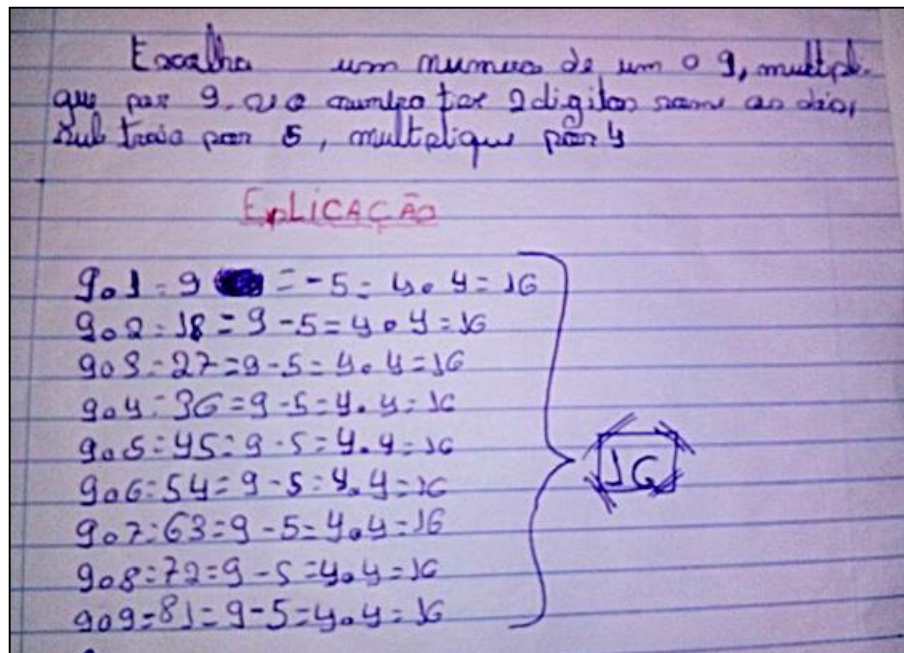 Escolha um numero de um a 9, multipli-
que por 9, se o numero ter 2 digitos some os dois,
sub traia por 5, multiplique por 4
ExPLICAÇÃO
9.1=9 =-5=4.4=16
9.2=18=9-5=4.4=16
9.3=27=9-5=4.4=16
9.4=36=9-5=4.4=16
9.5=45=9-5=4.4=16
9.6=54=9-5=4.4=16
9.7=63=9-5=4.4=16
9.8=72=9-5=4.4=16
9.9=81=9-5=4.4=16
16